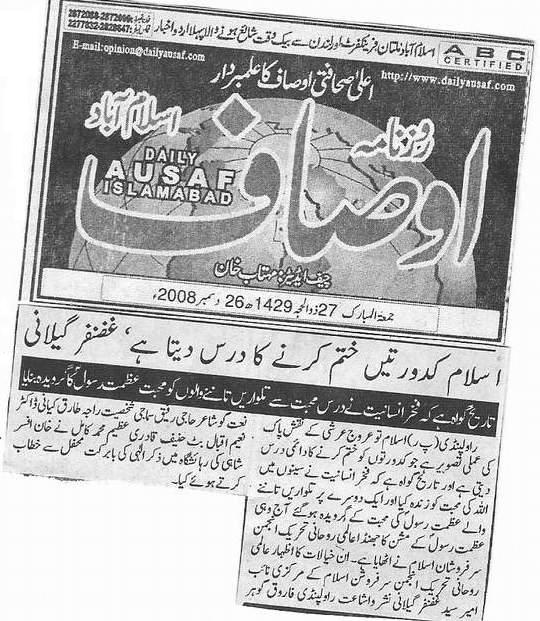 اسلام آباد ملتان فرینکفرٹ اور لندن سے بیک وقت شائع ہونے والا پہلا اردو اخبار
2872088-2872099
2277832-2828647
ABC
CERTIFIED
E-mail:opinion@dailyausaf.com
http://www.dailyausaf.com
اعلیٰ صحافتی اوصاف کا علمبردار
روزنامہ
اوصاف
اسلام آباد
DAILY
AUSAF
ISLAMABAD
چیف ایڈیٹر: مہتاب خان
جمعۃ المبارک 27 ذوالحجہ 1429ھ 26 دسمبر 2008ء
اسلام کدورتیں ختم کرنے کا درس دیتا ہے، غضنفر گیلانی
تاریخ گواہ ہے کہ فخر انسانیت نے درس محبت سے تلواریں تاننے والوں کو محبت عظمت رسول کا گرویدہ بنایا
راولپنڈی (پ ر) اسلام تو عروج عرشی کے نقش پاک
کی عملی تصویر ہے جو کدورتوں کو ختم کرنے کا دائمی درس
دیتی ہے اور تاریخ گواہ ہے کہ فخر انسانیت نے سینوں میں
اللہ کی محبت کو زندہ کیا اور ایک دوسرے پر تلواریں تاننے
والے عظمت رسول کی محبت کے گرویدہ ہو گئے آج وہی
عظمت رسول کے مشن کا جھنڈا عالمی روحانی تحریک انجمن
سرفروشان اسلام نے اٹھایا ہے۔ ان خیالات کا اظہار عالمی
روحانی تحریک انجمن سرفروشن اسلام کے مرکزی نائب
امیر سید غضنفر گیلانی نشر و اشاعت راولپنڈی فاروق گوہر
نعت گو شاعر حاجی رفیق سماجی شخصیت راجہ طارق کیانی ڈاکٹر
نعیم اقبال بٹ حنیف قادری عظیم محمد کامل نے خان افسر
شاہی کی رہائشگاہ میں ذکر الٰہی کی بابرکت محفل سے خطاب
کرتے ہوئے کیا۔